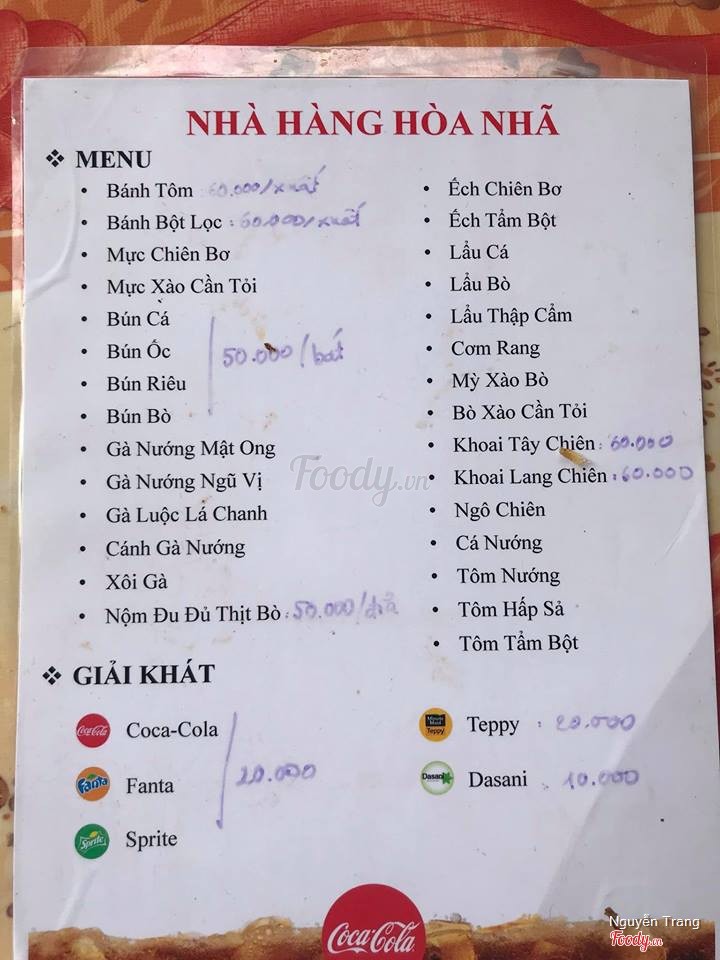 NHÀ HÀNG HÒA NHÃ
❖ MENU
• Bánh Tôm 60.000/xuất
• Bánh Bột Lọc : 60.000/xuất
• Mực Chiên Bơ
• Mực Xào Cần Tỏi
• Bún Cá
• Bún Ốc
50.000/bát
• Bún Riêu
• Bún Bò
• Gà Nướng Mật Ong
• Gà Nướng Ngũ Vị
• Gà Luộc Lá Chanh
• Cánh Gà Nướng
• Xôi Gà
• Nộm Đu Đủ Thịt Bò : 50.000/đĩa
• Ếch Chiên Bơ
• Ếch Tẩm Bột
• Lẩu Cá
• Lẩu Bò
• Lẩu Thập Cẩm
• Cơm Rang
• Mỳ Xào Bò
• Bò Xào Cần Tỏi
• Khoai Tây Chiên : 60.000
• Khoai Lang Chiên : 60.000
• Ngô Chiên
• Cá Nướng
• Tôm Nướng
• Tôm Hấp Sả
• Tôm Tẩm Bột
❖ GIẢI KHÁT
Coca-Cola Coca-Cola
Fanta Fanta
20.000
Sprite Sprite
Minute Maid Teppy Teppy : 20.000
Dasani Dasani : 10.000
Coca-Cola
Foody.vn
Nguyễn Trang
Foody.vn